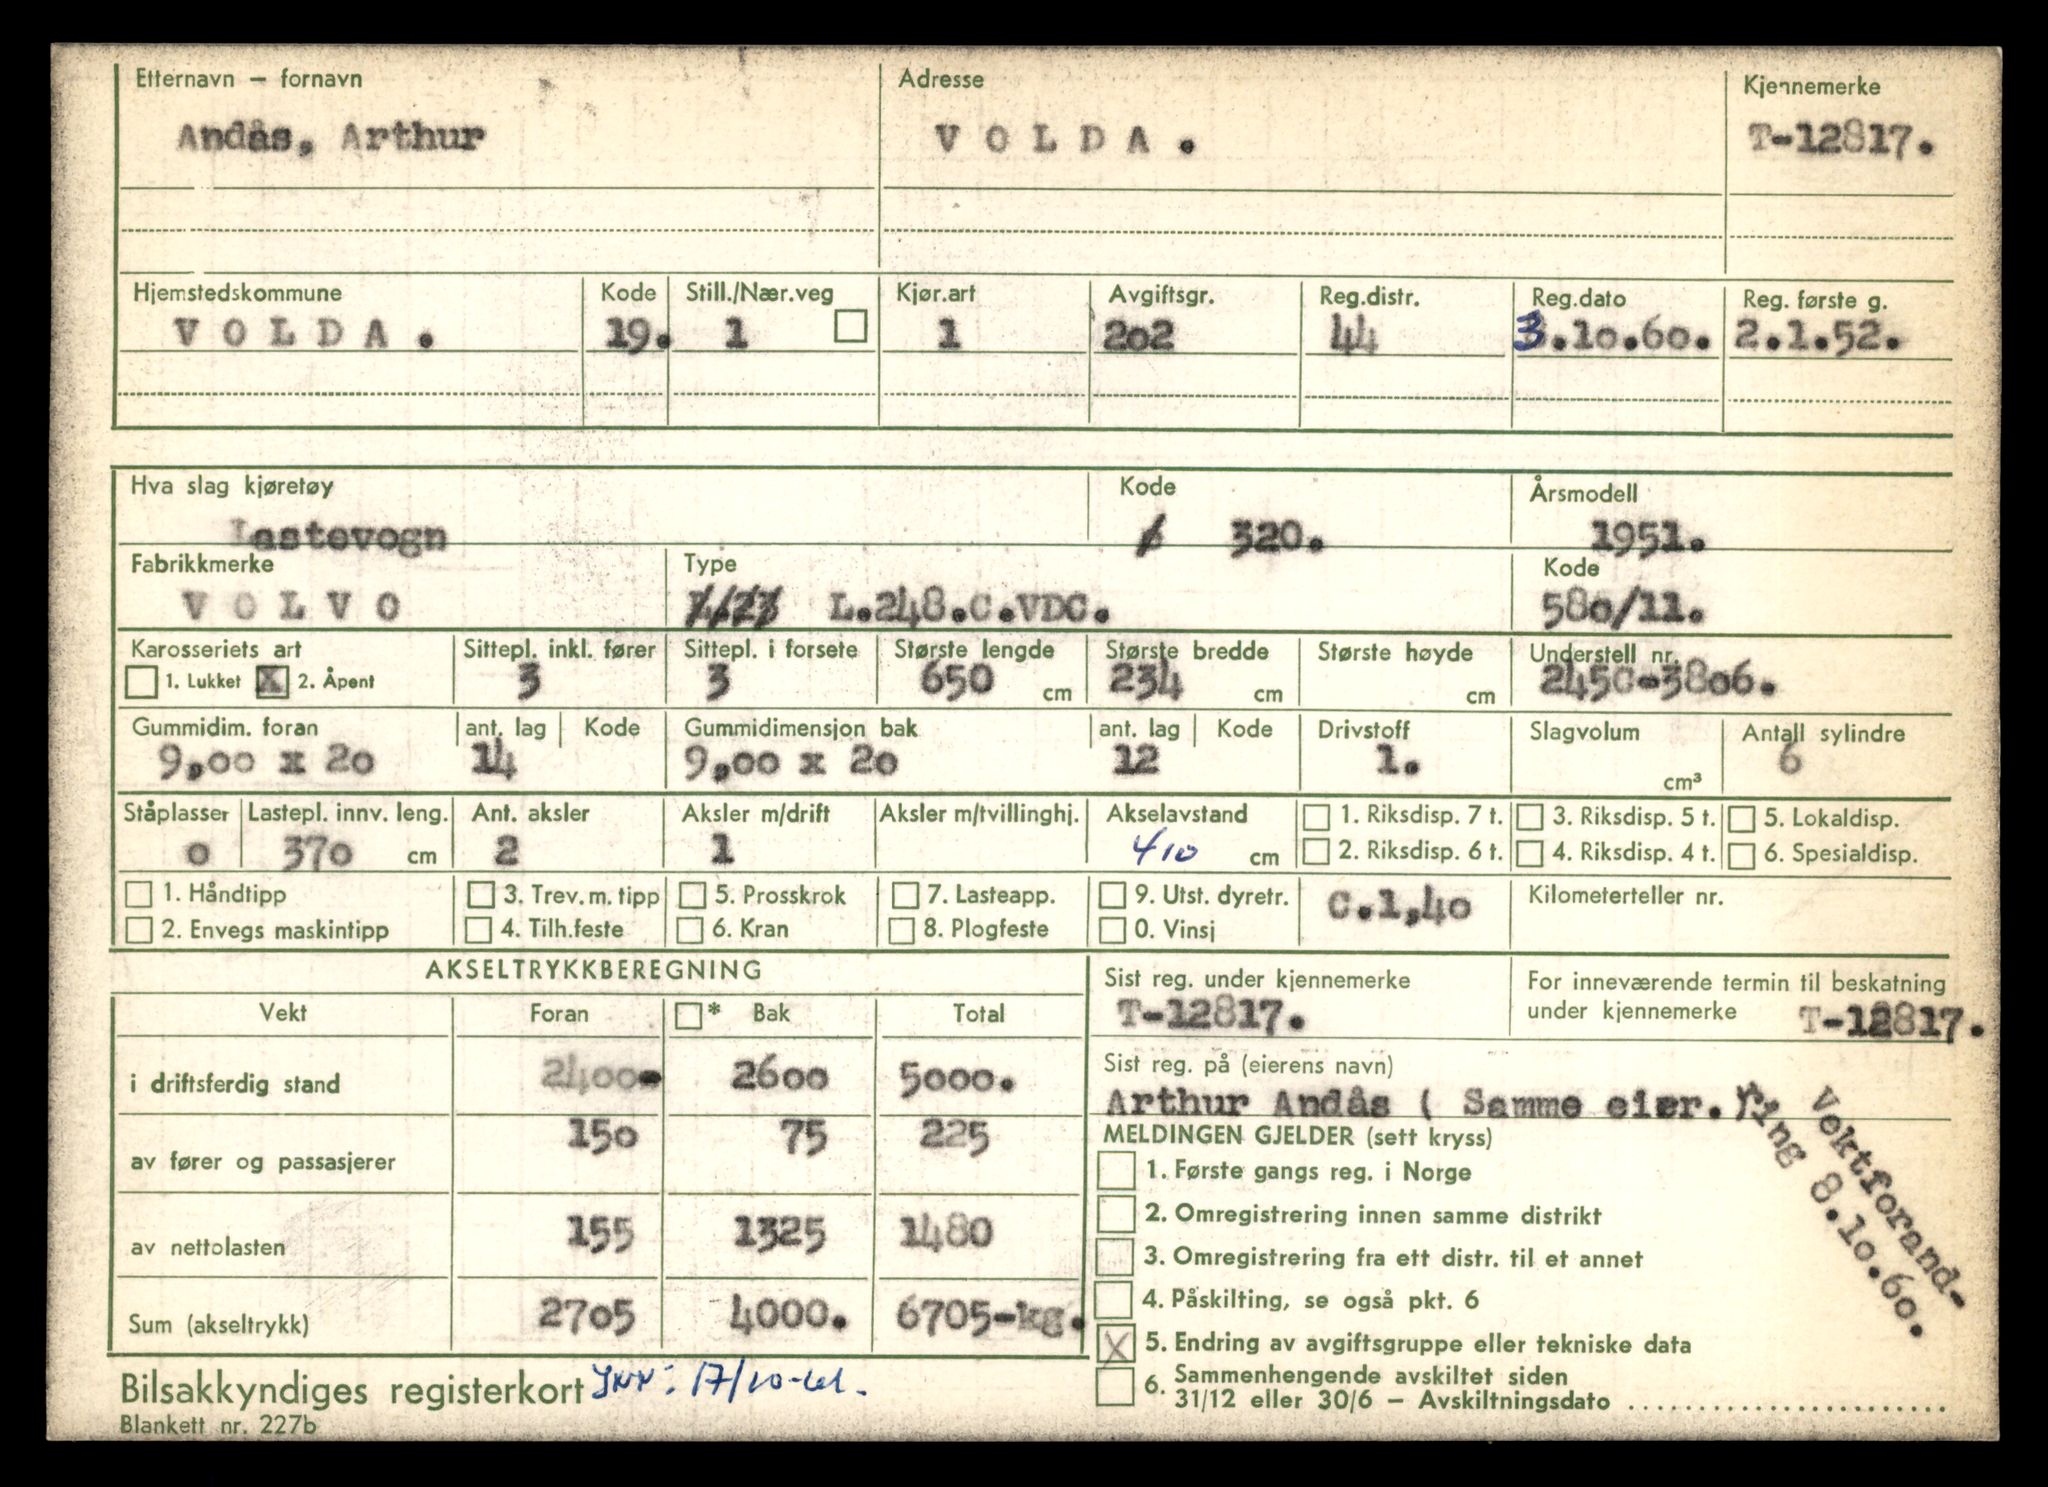 Etternavn – fornavn Adresse Kjennemerke
Andås, Arthur V O L D A . T-12817.
Hjemstedskommune Kode Still./Nær.veg Kjør.art Avgiftsgr. Reg.distr. Reg.dato Reg. første g.
V O L D A . 19. 1 1 202 44 3.10.60. 2.1.52.
Hva slag kjøretøy Kode Årsmodell
Lastevogn 320. 1951.
Fabrikkmerke Type Kode
V O L V O L.248.C.VDC. 580/11.
Karosseriets art Sittepl. inkl. fører Sittepl. i forsete Største lengde Største bredde Største høyde Understell nr.
1. Lukket X 2. Åpent 3 3 650 cm 234 cm cm 245C-3806.
Gummidim. foran ant. lag Kode Gummidimensjon bak ant. lag Kode Drivstoff Slagvolum Antall sylindre
9,00 x 20 14 9,00 x 20 12 1. cm³ 6
Ståplasser Lastepl. innv. leng. Ant. aksler Aksler m/drift Aksler m/tvillinghj. Akselavstand 1. Riksdisp. 7 t. 3. Riksdisp. 5 t. 5. Lokaldisp.
0 370 cm 2 1 410 cm 2. Riksdisp. 6 t. 4. Riksdisp. 4 t. 6. Spesialdisp.
1. Håndtipp 3. Trev. m. tipp 5. Prosskrok 7. Lasteapp. 9. Utst. dyretr. C.1,40 Kilometerteller nr.
2. Envegs maskintipp 4. Tilh.feste 6. Kran 8. Plogfeste 0. Vinsj
AKSELTRYKKBEREGNING
Vekt Foran * Bak Total
i driftsferdig stand 2400- 2600 5000.
av fører og passasjerer 150 75 225
av nettolasten 155 1325 1480
Sum (akseltrykk) 2705 4000. 6705-kg.
Sist reg. under kjennemerke For inneværende termin til beskatning
T-12817. under kjennemerke T-12817.
Sist reg. på (eierens navn)
Arthur Andås ( Samme eier. )
Vektforand-
ring 8.10.60.
MELDINGEN GJELDER (sett kryss)
1. Første gangs reg. i Norge
2. Omregistrering innen samme distrikt
3. Omregistrering fra ett distr. til et annet
4. Påskilting, se også pkt. 6
X 5. Endring av avgiftsgruppe eller tekniske data
6. Sammenhengende avskiltet siden
31/12 eller 30/6 – Avskiltningsdato ........................
Bilsakkyndiges registerkort
Blankett nr. 227b